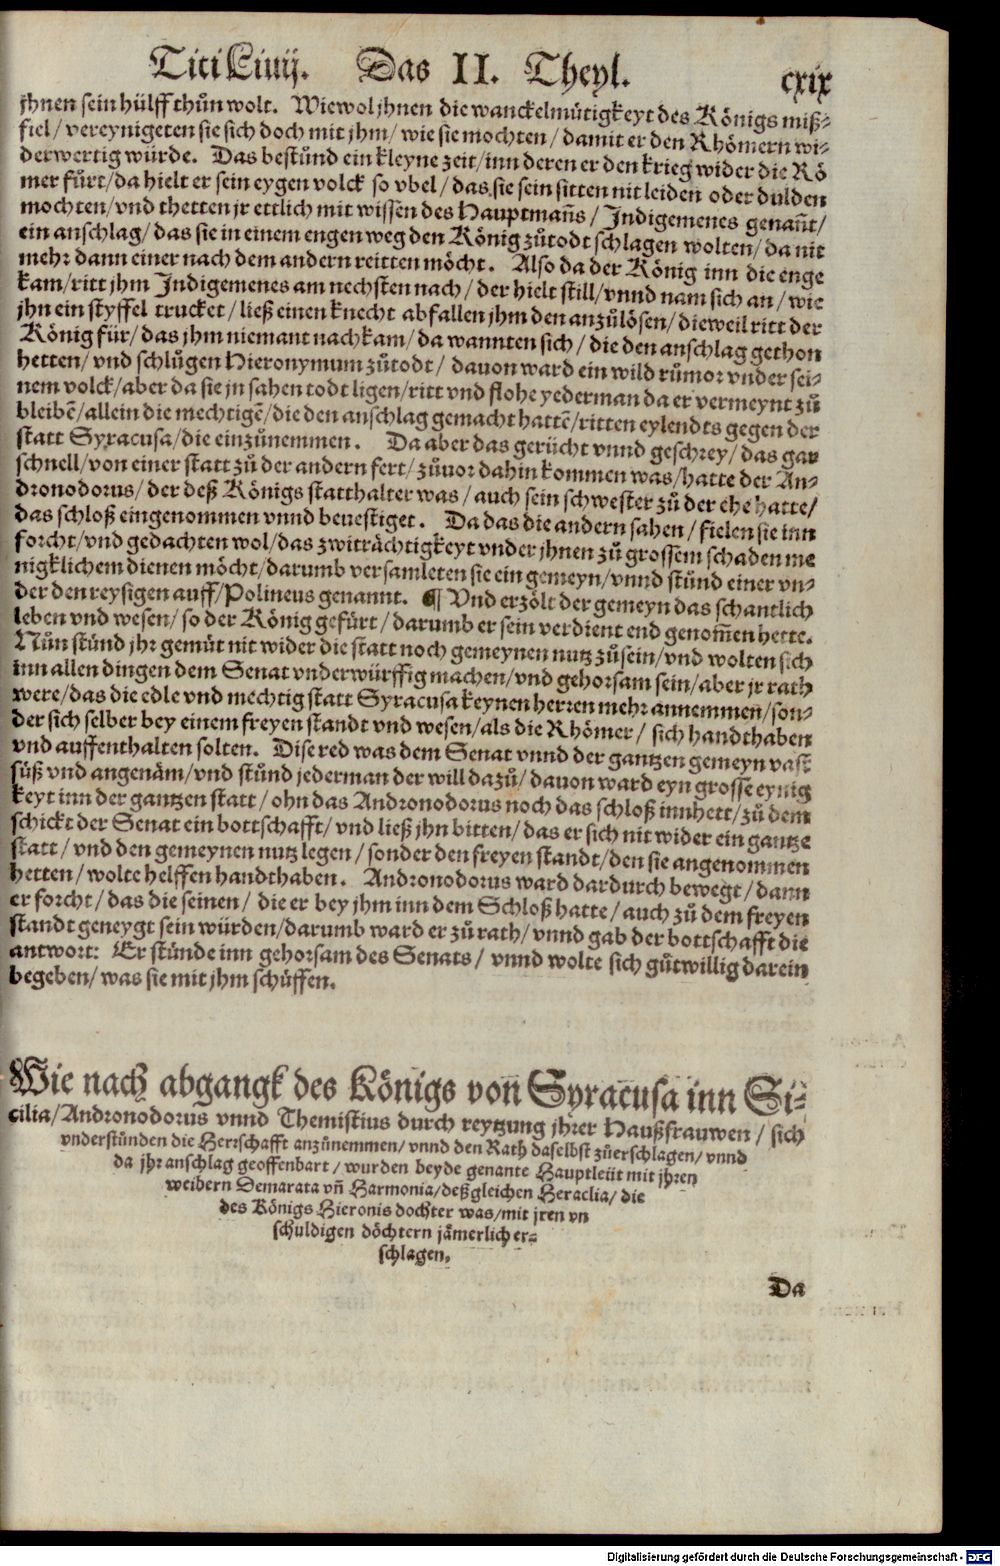 Titi Liuij. Das II. Theyl. cxix
jhnen sein hülff thůn wolt. Wiewol jhnen die wanckelmütigkeyt des Königs miß-
fiel/ vereynigeten sie sich doch mit jhm/ wie sie mochten/ damit er den Rhömern wi-
derwertig würde. Das bestůnd ein kleyne zeit/ inn deren er den krieg wider die Rö
mer fůrt/ da hielt er sein eygen volck so vbel/ das sie sein sitten nit leiden oder dulden
mochten/ vnd thetten jr ettlich mit wissen des Hauptmañs/ Indigemenes genañt/
ein anschlag/ das sie in einem engen weg den König zůtodt schlagen wolten/ da nit
mehr dann einer nach dem andern reitten möcht. Also da der König inn die enge
kam/ ritt jhm Indigemenes am nechsten nach/ der hielt still/ vnnd nam sich an/ wie
jhn ein styffel trucket/ ließ einen knecht abfallen jhm den anzůlösen/ dieweil ritt der
König für/ das jhm niemant nachkam/ da wannten sich/ die den anschlag gethon
hetten/ vnd schlůgen Hieronymum zůtodt/ dauon ward ein wild růmor vnder sei-
nem volck/ aber da sie jn sahen todt ligen/ ritt vnd flohe yederman da er vermeynt zů
bleibē/ allein die mechtigē/ die den anschlag gemacht hattē/ ritten eylendts gegen der
statt Syracusa/ die einzůnemmen. Da aber das gerücht vnnd geschrey/ das gar
schnell/ von einer statt zů der andern fert/ zůuor dahin kommen was/ hatte der An-
dronodorus/ der deß Königs statthalter was/ auch sein schwester zů der ehe hatte/
das schloß eingenommen vnnd beuestiget. Da das die andern sahen/ fielen sie inn
forcht/ vnd gedachten wol/ das zwiträchtigkeyt vnder jhnen zů grossem schaden me
nigklichem dienen möcht/ darumb versamleten sie ein gemeyn/ vnnd stůnd einer vn-
der den reysigen auff/ Polineus genannt. ¶ Vnd erzölt der gemeyn das schantlich
leben vnd wesen/ so der König gefürt/ darumb er sein verdient end genom̃en hette.
Nůn stůnd jhr gemüt nit wider die statt noch gemeynen nutz zůsein/ vnd wolten sich
inn allen dingen dem Senat vnderwürffig machen/ vnd gehorsam sein/ aber jr rath
were/ das die edle vnd mechtig statt Syracusa keynen herren mehr annemmen/ son-
der sich selber bey einem freyen standt vnd wesen/ als die Rhömer/ sich handthaben
vnd auffenthalten solten. Dise red was dem Senat vnnd der gantzen gemeyn vast
süß vnd angenäm/ vnd stůnd jederman der will dazů/ dauon ward eyn grosse eynig
keyt inn der gantzen statt/ ohn das Andronodorus noch das schloß innhett/ zů dem
schickt der Senat ein bottschafft/ vnd ließ jhn bitten/ das er sich nit wider ein gantze
statt/ vnd den gemeynen nutz legen/ sonder den freyen standt/ den sie angenommen
hetten/ wolte helffen handthaben. Andronodorus ward dardurch bewegt/ dann
er forcht/ das die seinen/ die er bey jhm inn dem Schloß hatte/ auch zů dem freyen
standt geneygt sein würden/ darumb ward er zů rath/ vnnd gab der bottschafft die
antwort: Er stünde inn gehorsam des Senats/ vnnd wolte sich gůtwillig darein
begeben/ was sie mit jhm schüffen.
Wie nach abgangk des Königs von Syracusa inn Si-
cilia/ Andronodorus vnnd Themistius durch reytzung jhrer Haußfrauwen/ sich
vnderstůnden die Herrschafft anzůnemmen/ vnnd den Rath daselbst zůerschlagen/ vnnd
da jhr anschlag geoffenbart/ wurden beyde genante Hauptleüt mit jhren
weibern Demarata vñ Harmonia/ deßgleichen Heraclia/ die
des Königs Hieronis dochter was/ mit jren vn
schuldigen döchtern jämerlich er-
schlagen.
Da
Digitalisierung gefördert durch die Deutsche Forschungsgemeinschaft - DFG